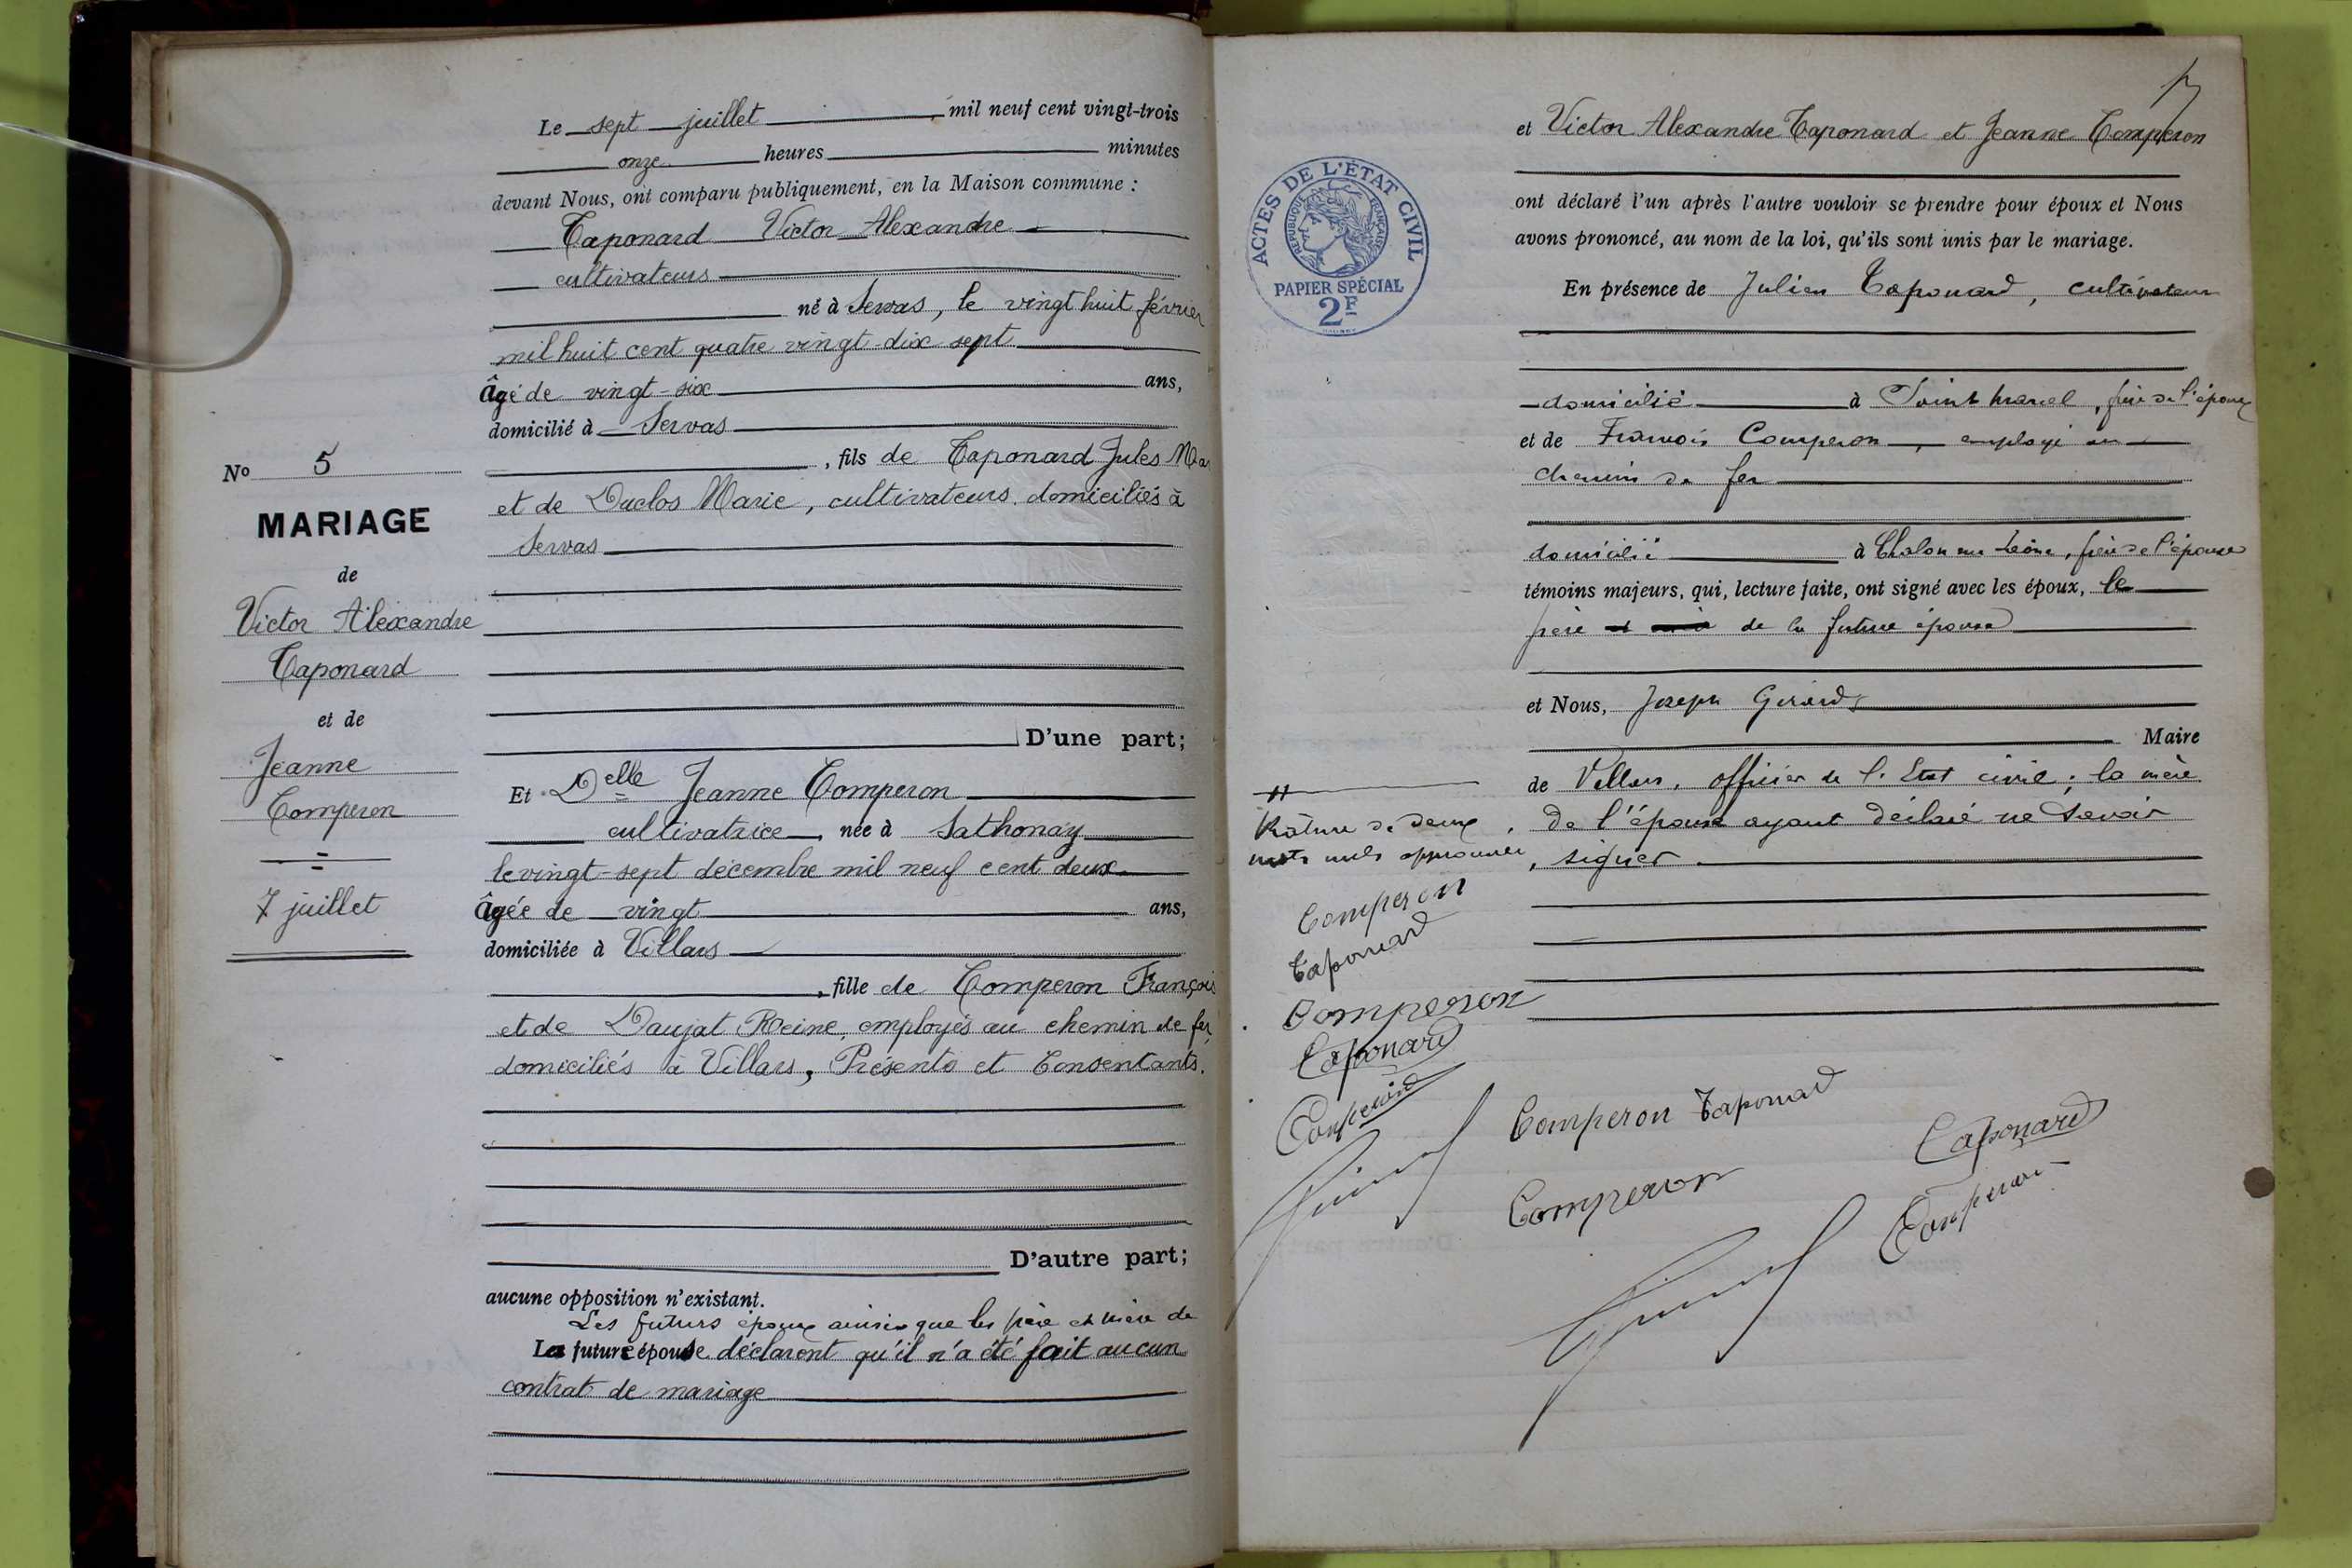 Le sept juillet mil neuf cent vingt-trois
onze heures minutes
devant Nous, ont comparu publiquement, en la Maison commune :
Taponard Victor Alexandre
cultivateurs
né à Servas, le vingt huit février
mil huit cent quatre vingt-dix sept
âgé de vingt-six ans,
domicilié à Servas
, fils de Taponard Jules
et de Duclos Marie, cultivateurs domiciliés à
Servas
D'une part;
No 5
MARIAGE
de
Victor Alexandre
Taponard
et de
Jeanne
Comperon
7 juillet
Et Delle Jeanne Comperon
cultivatrice, née à Sathonay
le vingt-sept décembre mil neuf cent deux
âgée de vingt ans,
domiciliée à Villars
, fille de Comperon François
et de Daujat Reine, employés au chemin de fer,
domiciliés à Villars, Présents et Consentants.
D'autre part;
aucune opposition n'existant.
Les futurs époux ainsi que les père et mère de
La future épouse déclarent qu'il n'a été fait aucun
contrat de mariage
et Victor Alexandre Taponard et Jeanne Comperon
ont déclaré l'un après l'autre vouloir se prendre pour époux et Nous
avons prononcé, au nom de la loi, qu'ils sont unis par le mariage.
ACTES DE L'ÉTAT CIVIL
RÉPUBLIQUE FRANÇAISE
PAPIER SPÉCIAL
2F
En présence de Julien Taponard, cultivateur
domicilié à Saint Marcel, frère de l'époux
et de François Comperon, employé au
chemin de fer
domicilié à Chalon sur Saône, frère de l'épouse
témoins majeurs, qui, lecture faite, ont signé avec les époux, le
père de la future épouse
et Nous, Joseph Girard
Maire
de Villars, officier de l'Etat civil; la mère
de l'épouse ayant déclaré ne savoir
signer.
Rature de deux
mots nuls approuvée
Comperon
Taponard
Comperon
Taponard
Comperon
Comperon Taponard
Taponard
Comperon
Comperon